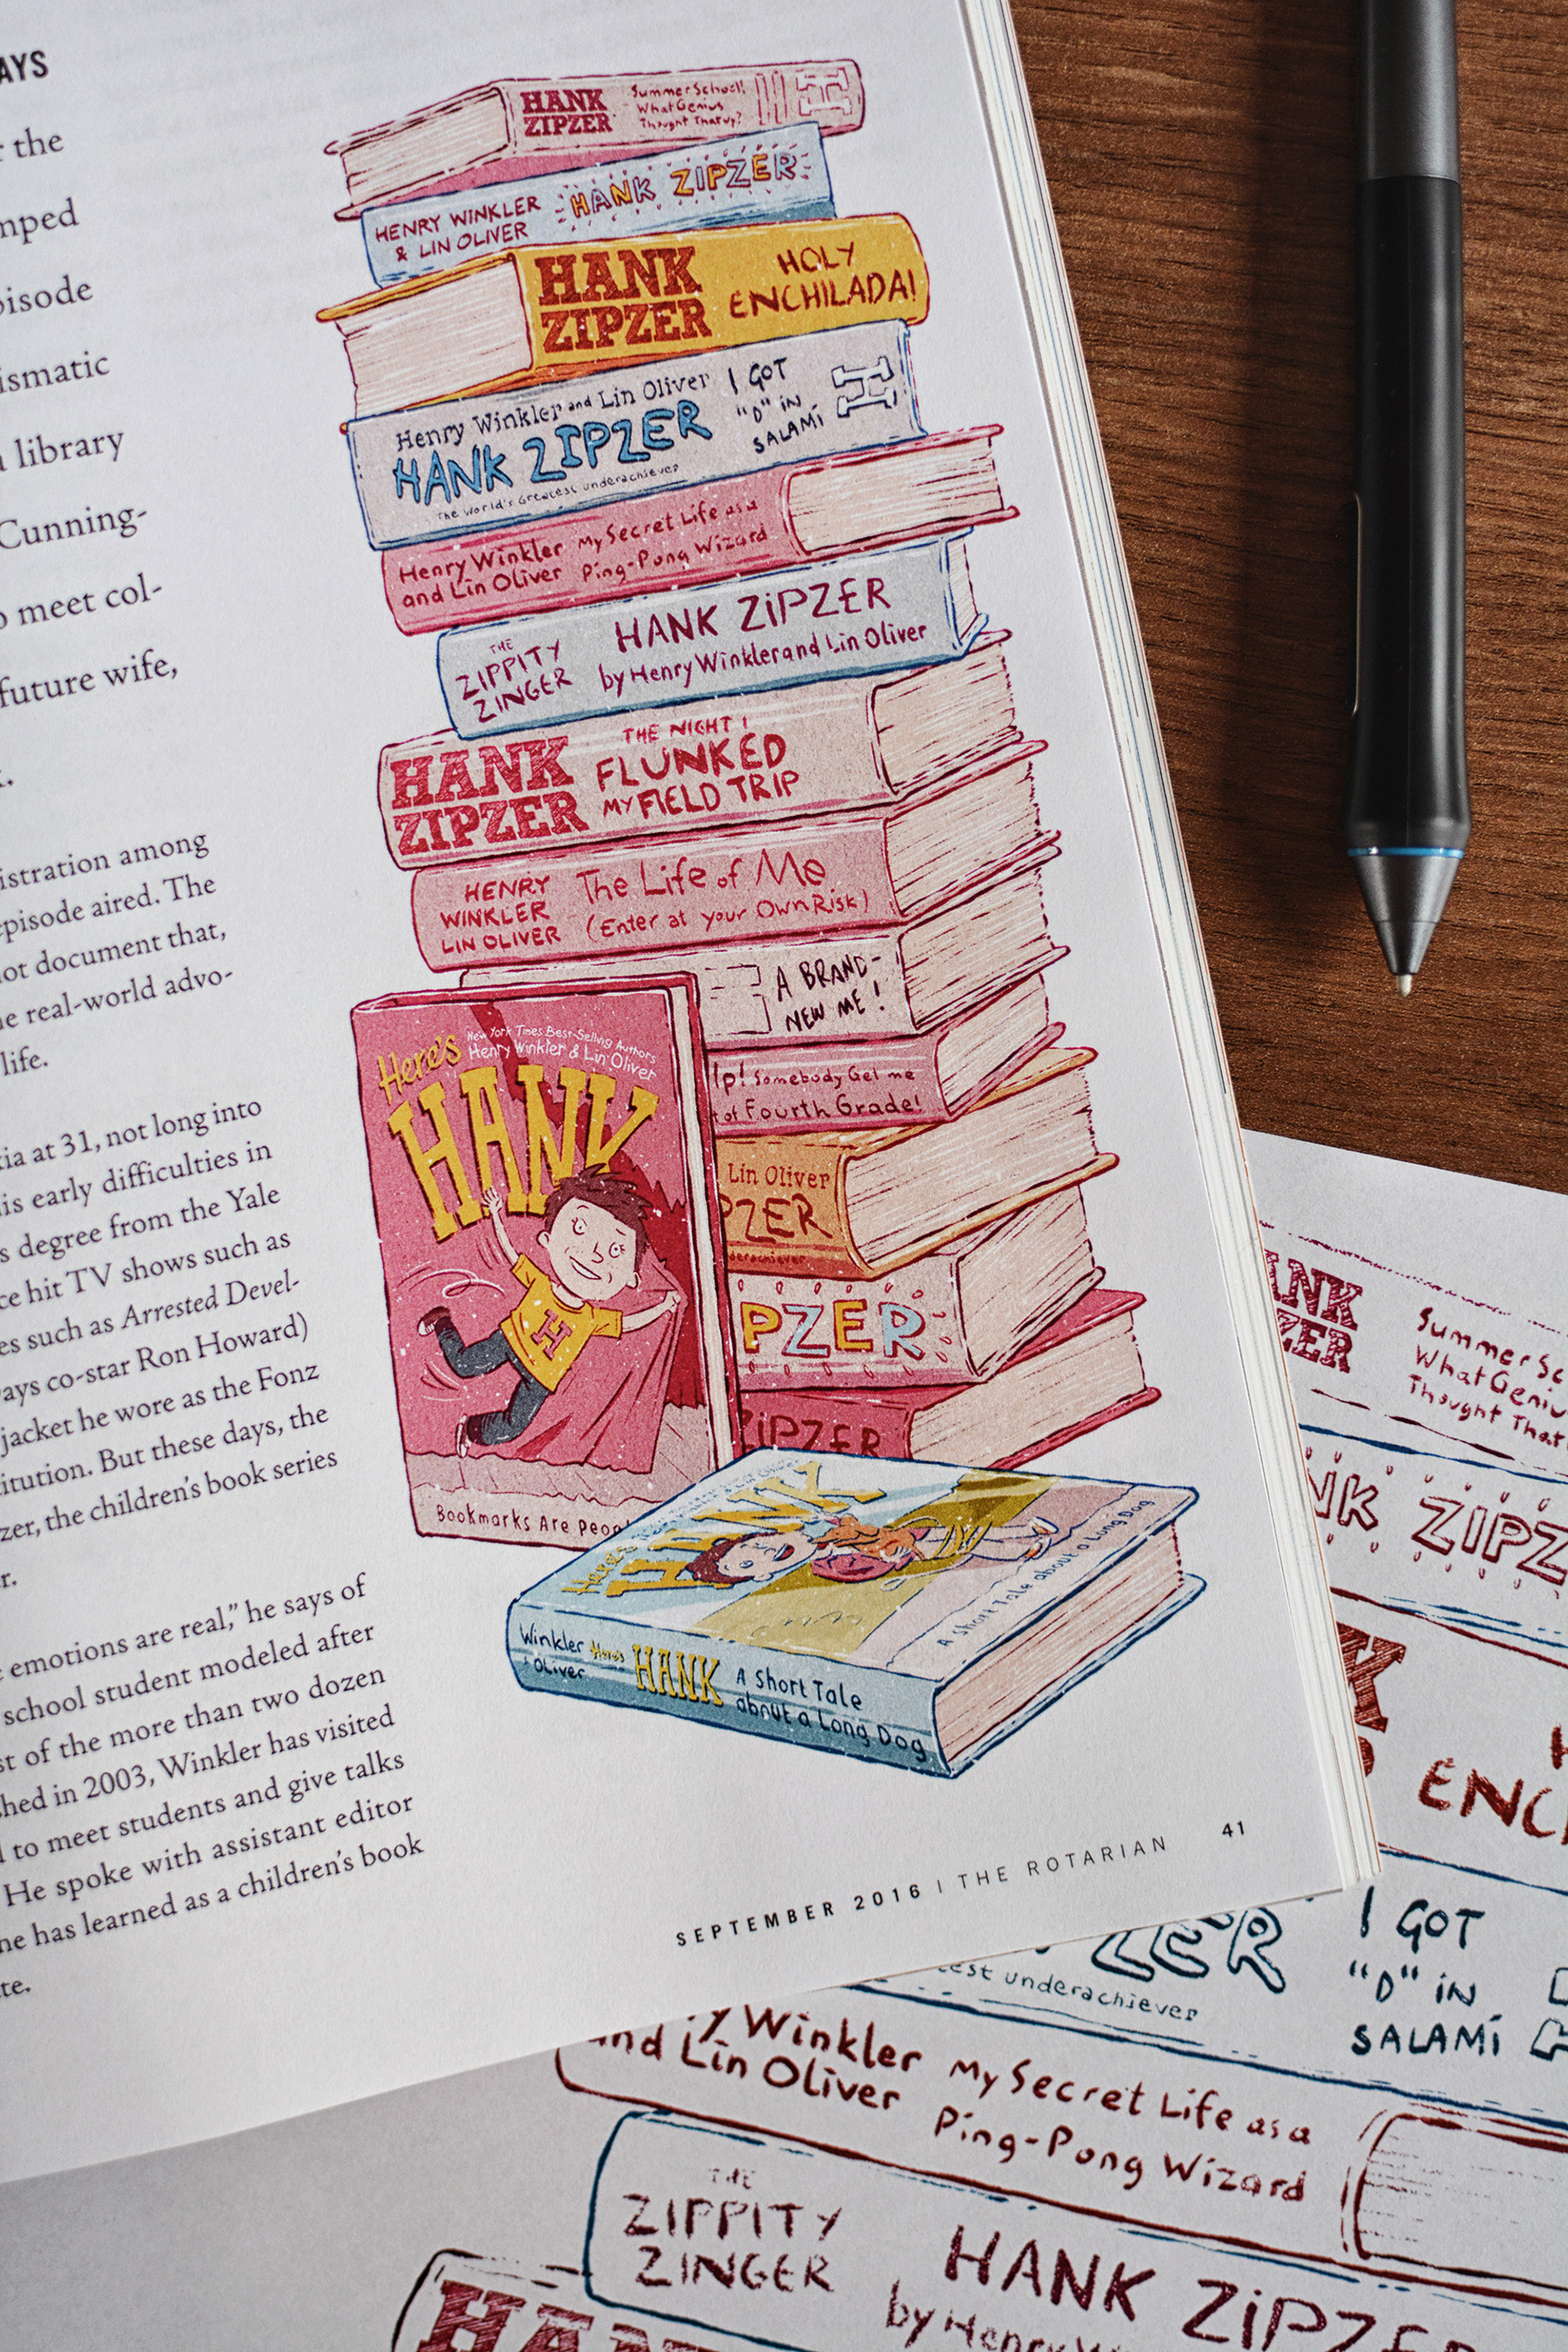 AYS
the
mped
isode
ismatic
library
Cunning-
meet col-
future wife,
istration among
episode aired. The
ot document that,
e real-world advo-
life.
ia at 31, not long into
is early difficulties in
s degree from the Yale
ce hit TV shows such as
es such as Arrested Devel-
ays co-star Ron Howard)
jacket he wore as the Fonz
itution. But these days, the
zer, the children's book series
r.
emotions are real," he says of
school student modeled after
st of the more than two dozen
shed in 2003, Winkler has visited
to meet students and give talks
He spoke with assistant editor
he has learned as a children's book
te.
HANK
ZIPZER
Summer School!
What Genius
Thought That Up?
H
HENRY WINKLER
& LIN OLIVER
HANK ZIPZER
HANK
ZIPZER
HOLY
ENCHILADA!
Henry Winkler and Lin Oliver
HANK ZIPZER
The World's Greatest underachiever
I GOT
"D" IN
SALAMI
H
Henry Winkler
and Lin Oliver
My Secret Life as a
Ping-Pong Wizard
THE
ZIPPITY
ZINGER
HANK ZIPZER
by Henry Winkler and Lin Oliver
HANK
ZIPZER
THE NIGHT I
FLUNKED
MY FIELD TRIP
HENRY
WINKLER
LIN OLIVER
The Life of Me
(Enter at your Own Risk)
A BRAND-
NEW ME!
lp! Somebody Get me
t of Fourth Grade!
Lin Oliver
PZER
derachiever
PZER
ZIPZER
Here's
New York Times Best-Selling Authors
Henry Winkler & Lin Oliver
HANK
H
Bookmarks Are Peop
Here's
HANK
A Short Tale about a Long Dog
Winkler
& Oliver
Here's
HANK
A Short Tale
about a Long Dog
SEPTEMBER 2016 | THE ROTARIAN 41
ANK
ZER
Summer Sc
What Geniu
Thought That
NK ZIPZ
K
ENC
ZER
est underachiever
I GOT
"D" IN
SALAMI
y Winkler
and Lin Oliver
My Secret Life as a
Ping-Pong Wizard
THE
ZIPPITY
ZINGER
HANK ZIPZE
by Henry W
HAN